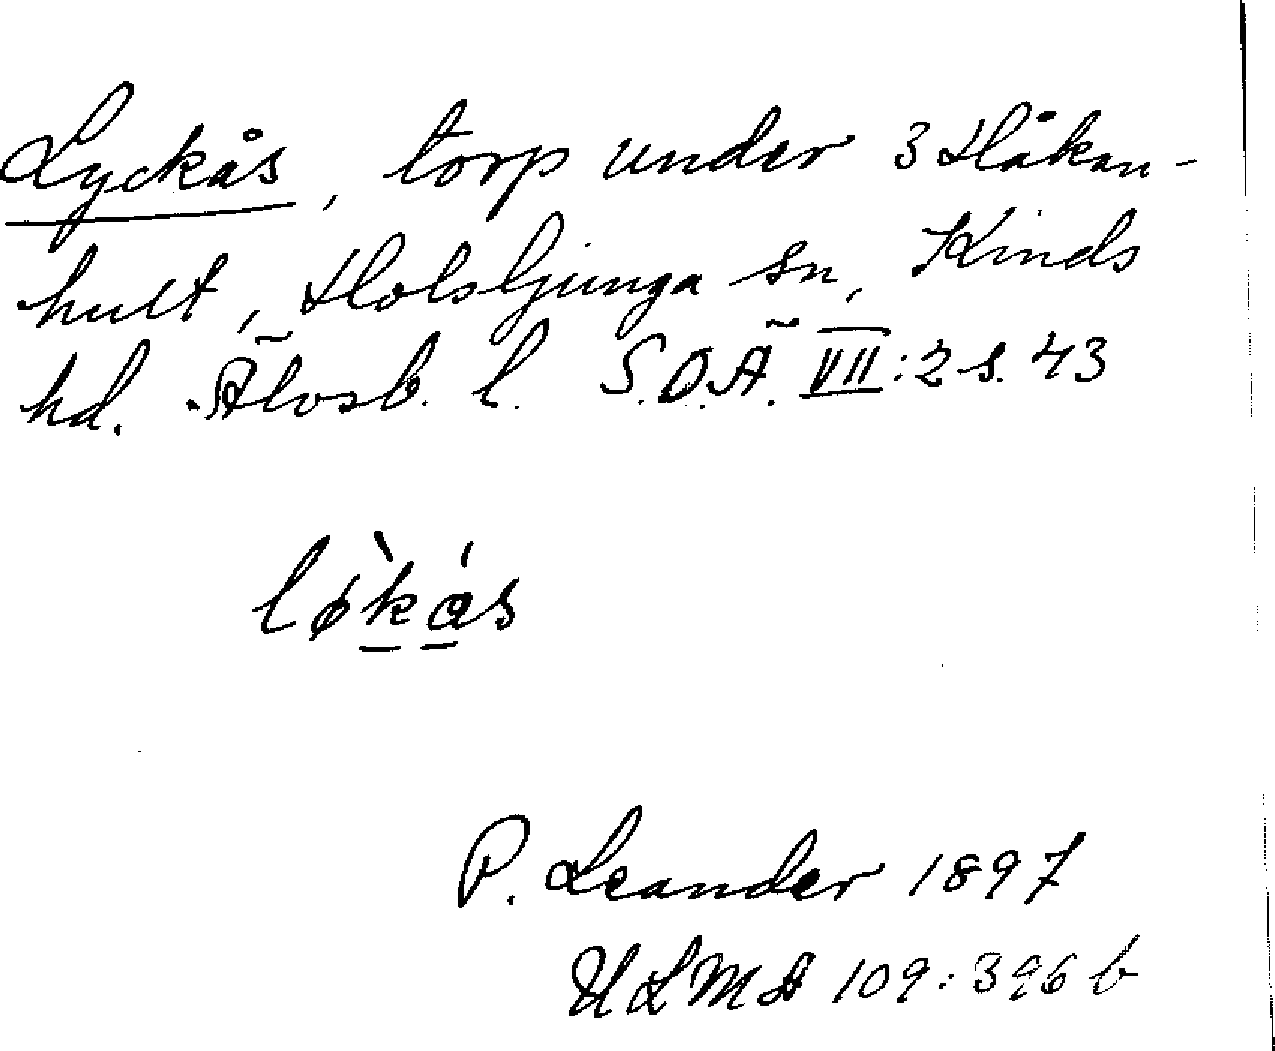 Lyckås, torp under 3 Håkan-
hult, Holsljunga sn, Kinds
hd. Älvsb. l. S.O.Ä. VII:2 s. 43
lø̀kás
P. Leander 1897
ULMA 109:396 b